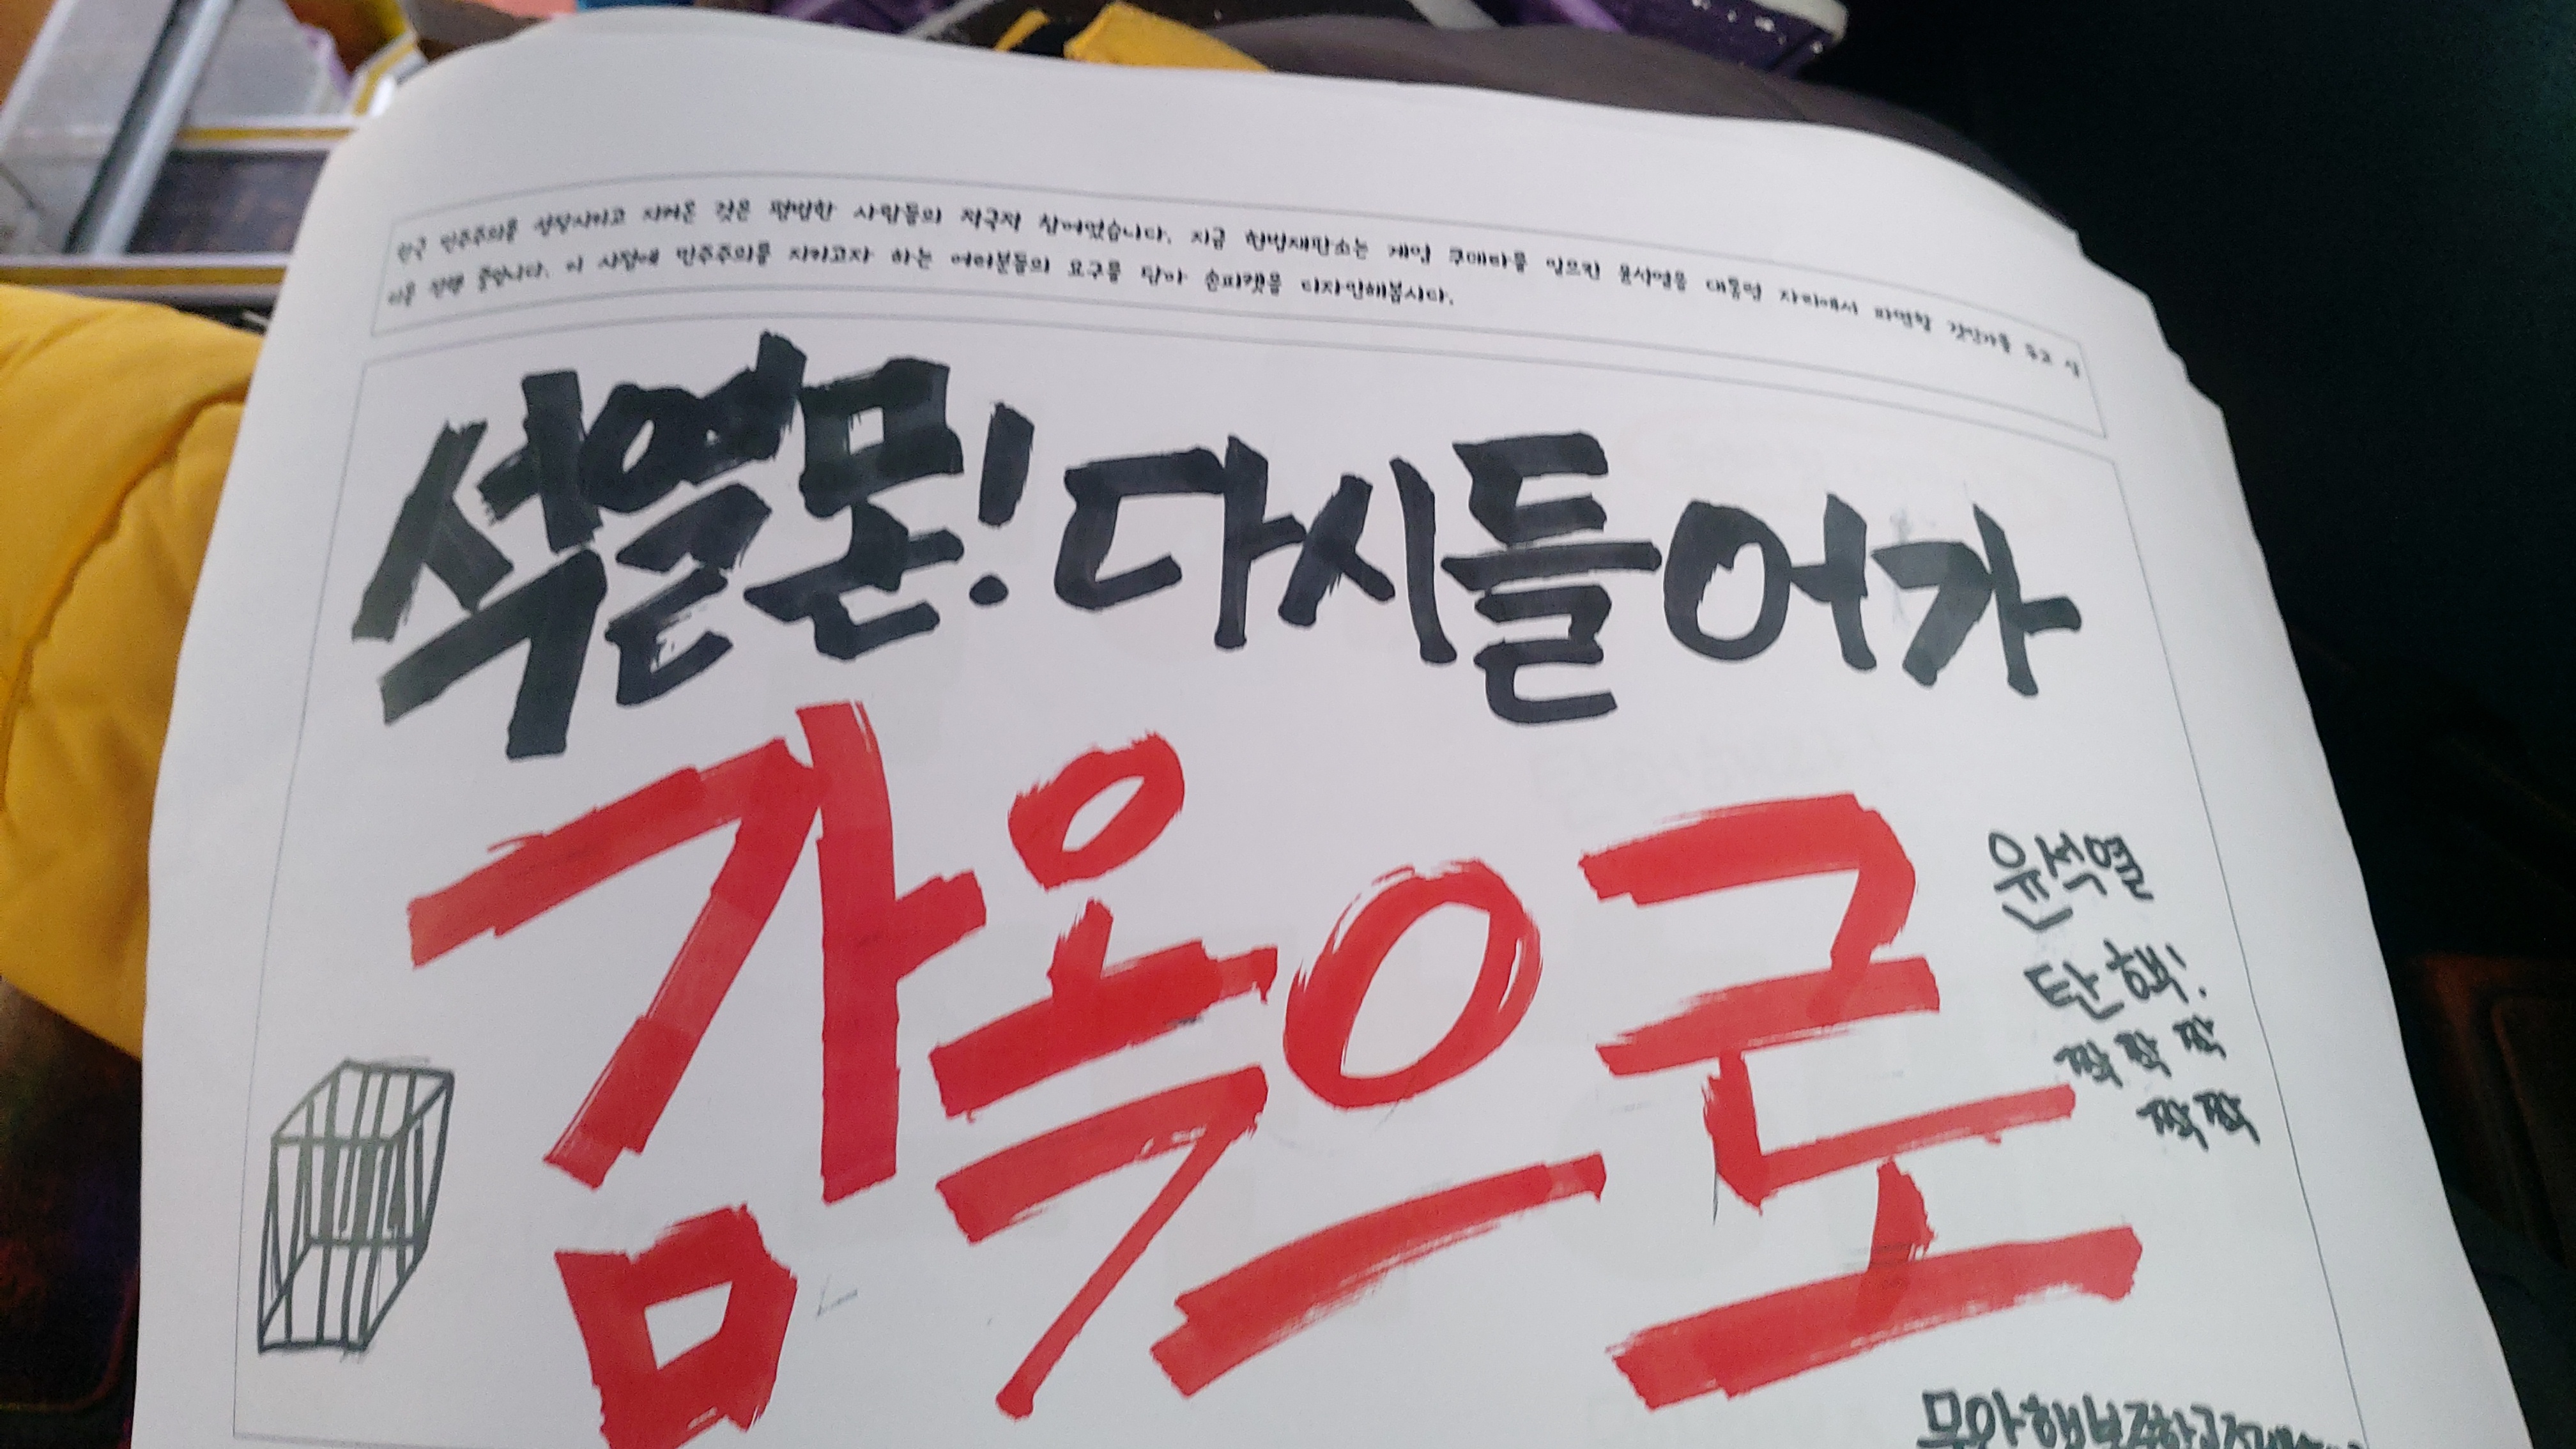 한국 민주주의를 성장시키고 지켜온 것은 평범한 사람들의 적극적 참여였습니다. 지금 헌법재판소는 계엄 쿠데타를 일으킨 윤석열을 대통령 자리에서 파면할 것인가를 두고 심
리를 진행 중입니다. 이 시점에 민주주의를 지키고자 하는 여러분들의 요구를 담아 손피켓을 디자인해봅시다.
석열몬! 다시 들어가
감옥으로
윤석열
탄핵!
짝 짝 짝
짝 짝